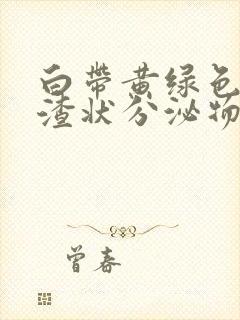 白带黄绿色
渣状分泌物
曾春